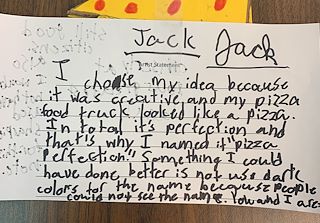 Jack Jack
Artist Statement
I chose my idea because
it was creative and my pizza
food truck looked like a pizza.
In total it's perfection and
that's why I named it "pizza
perfection". Something I could
have done better is not use dark
colors for the name because people
could not see the name.